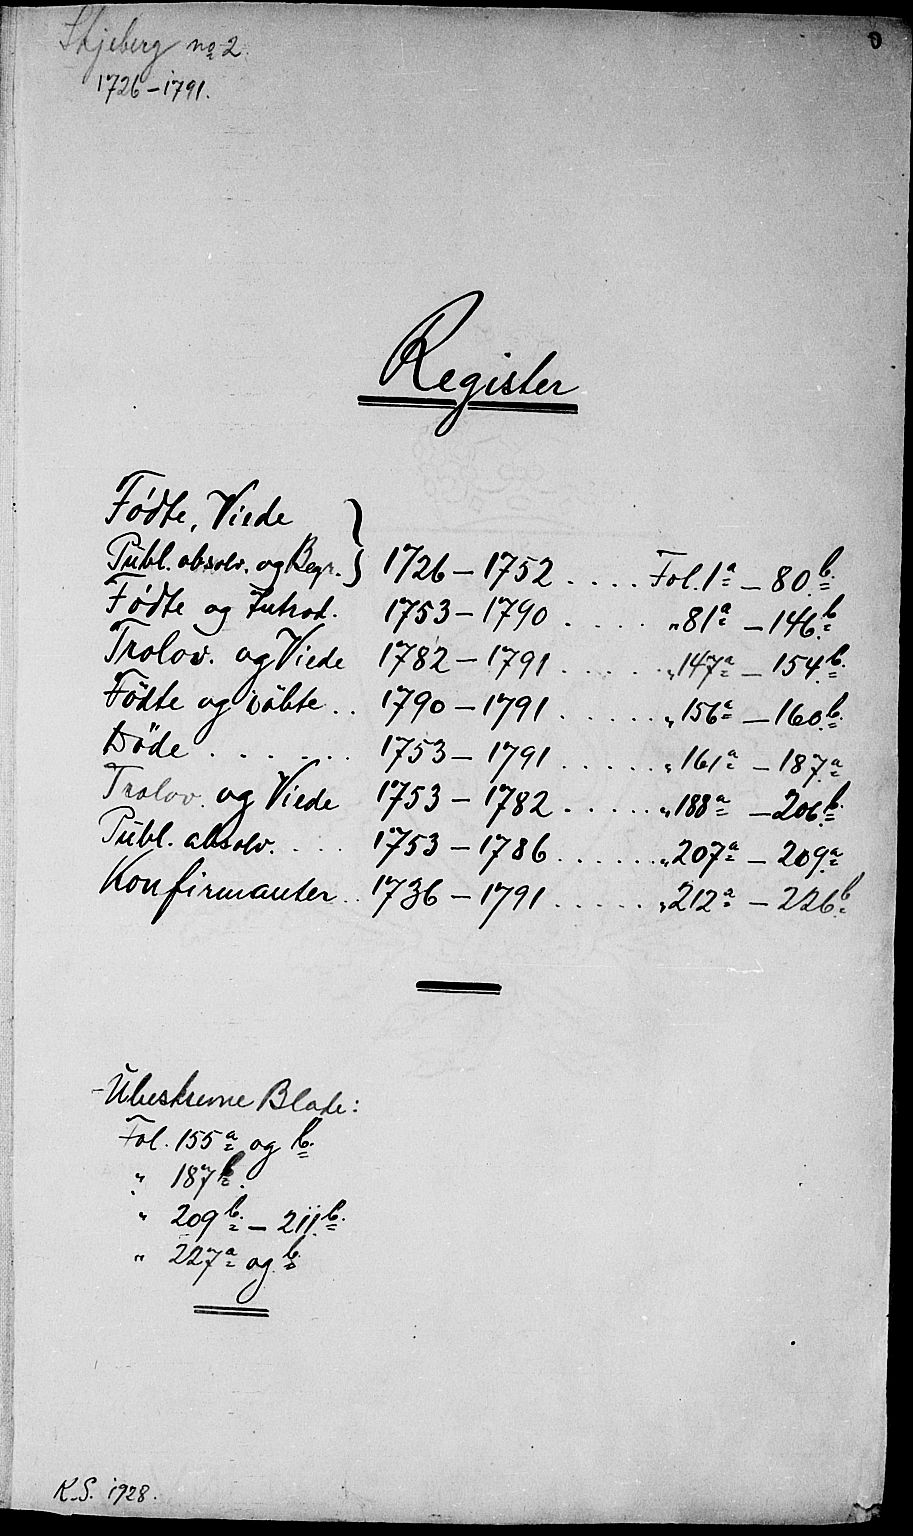 Skjeberg no 2.
1726-1791.
0
Register
Fødte, Viede
Publ. absolv. og Begr. } 1726-1752 .... Fol. 1a - 80b.
Fødte og Introd. 1753-1790 ..... " 81a - 146b
Trolov. og Viede 1782-1791 ..... " 147a - 154b.
Födte og döbte .. 1790-1791 ...... " 156a - 160b.
Döde ....... 1753-1791 ..... " 161a - 187a
Trolov. og Viede 1753-1782 ..... " 188a - 206b.
Publ. absolv. ... 1753-1786 ...... " 207a - 209a
Konfirmanter .. 1736-1791 ..... " 212a - 226b
Ubeskrevne Blade:
Fol. 155a og b.
" 187b.
" 209b. - 211b.
" 227a og b.
K.S. 1928.